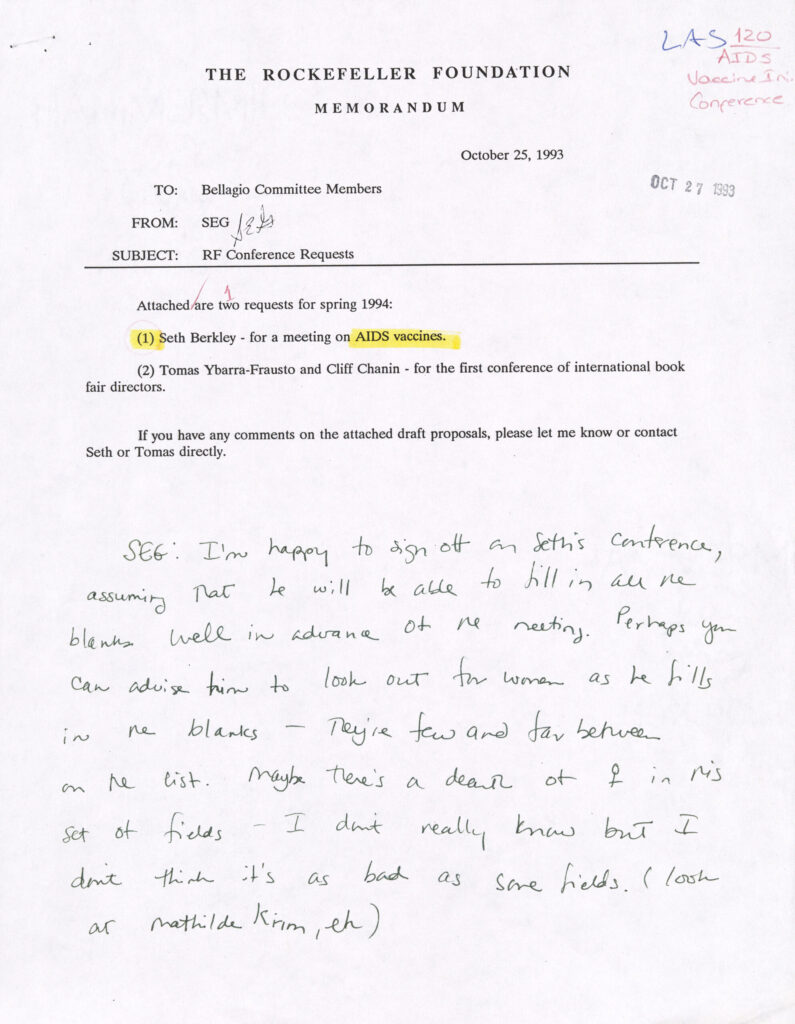 LAS 120
AIDS
Vaccine Ini.
Conference
THE ROCKEFELLER FOUNDATION
MEMORANDUM
October 25, 1993
OCT 27 1993
TO: Bellagio Committee Members
FROM: SEG
SUBJECT: RF Conference Requests
Attached are two requests for spring 1994:
(1) Seth Berkley - for a meeting on AIDS vaccines.
(2) Tomas Ybarra-Frausto and Cliff Chanin - for the first conference of international book
fair directors.
If you have any comments on the attached draft proposals, please let me know or contact
Seth or Tomas directly.
SEG: I'm happy to sign off on Seth's conference,
assuming that he will be able to fill in all the
blanks well in advance of the meeting. Perhaps you
can advise him to look out for women as he fills
in the blanks – They're few and far between
on the list. Maybe there's a dearth of ♀ in this
set of fields – I don't really know but I
don't think it's as bad as some fields. (look
at Mathilde Krim, eh)